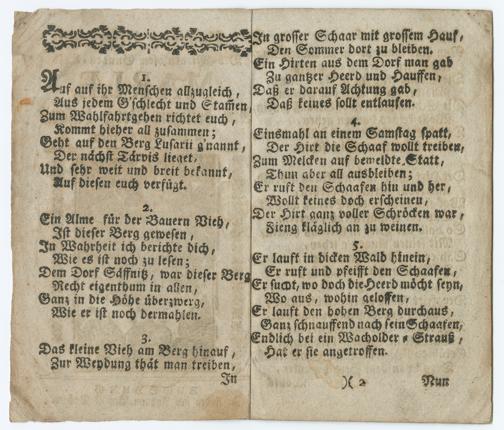 1.
Auf auf ihr Menschen allzugleich,
Aus jedem G'schlecht und Stam̃en,
Zum Wahlfahrtgehen richtet euch,
Kommt hieher all zusammen;
Geht auf den Berg Lusarii g'nannt,
Der nächst Tärvis lieget,
Und sehr weit und breit bekannt,
Auf diesen euch verfügt.
2.
Ein Alme für der Bauern Vieh,
Ist dieser Berg gewesen,
In Wahrheit ich berichte dich,
Wie es ist noch zu lesen;
Dem Dorf Säffnitz, war dieser Berg
Recht eigenthum in allen,
Ganz in die Höhe überzwerg,
Wie er ist noch dermahlen.
3.
Das kleine Vieh am Berg hinauf,
Zur Weydung thät man treiben,
In
In grosser Schaar mit grossem Hauf,
Den Sommer dort zu bleiben.
Ein Hirten aus dem Dorf man gab
Zu ganzer Heerd und Hauffen,
Daß er darauf Achtung gab,
Daß keines sollt entlaufen.
4.
Einsmahl an einem Samstag spatt,
Der Hirt die Schaaf wollt treiben,
Zum Melcken auf bemeldte Statt,
Thun aber all ausbleiben;
Er ruft den Schaafen hin und her,
Wollt keines doch erscheinen,
Der Hirt ganz voller Schröcken war,
Fieng kläglich an zu weinen.
5.
Er lauft in dicken Wald hinein,
Er ruft und pfeifft den Schaafen,
Er sucht, wo doch die Heerd möcht seyn,
Wo aus, wohin geloffen,
Er lauft den hohen Berg durchaus,
Ganz schnauffend nach sein Schaafen,
Endlich bei ein Wacholder-Strauß,
Hat er sie angetroffen.
)( 2 Nun